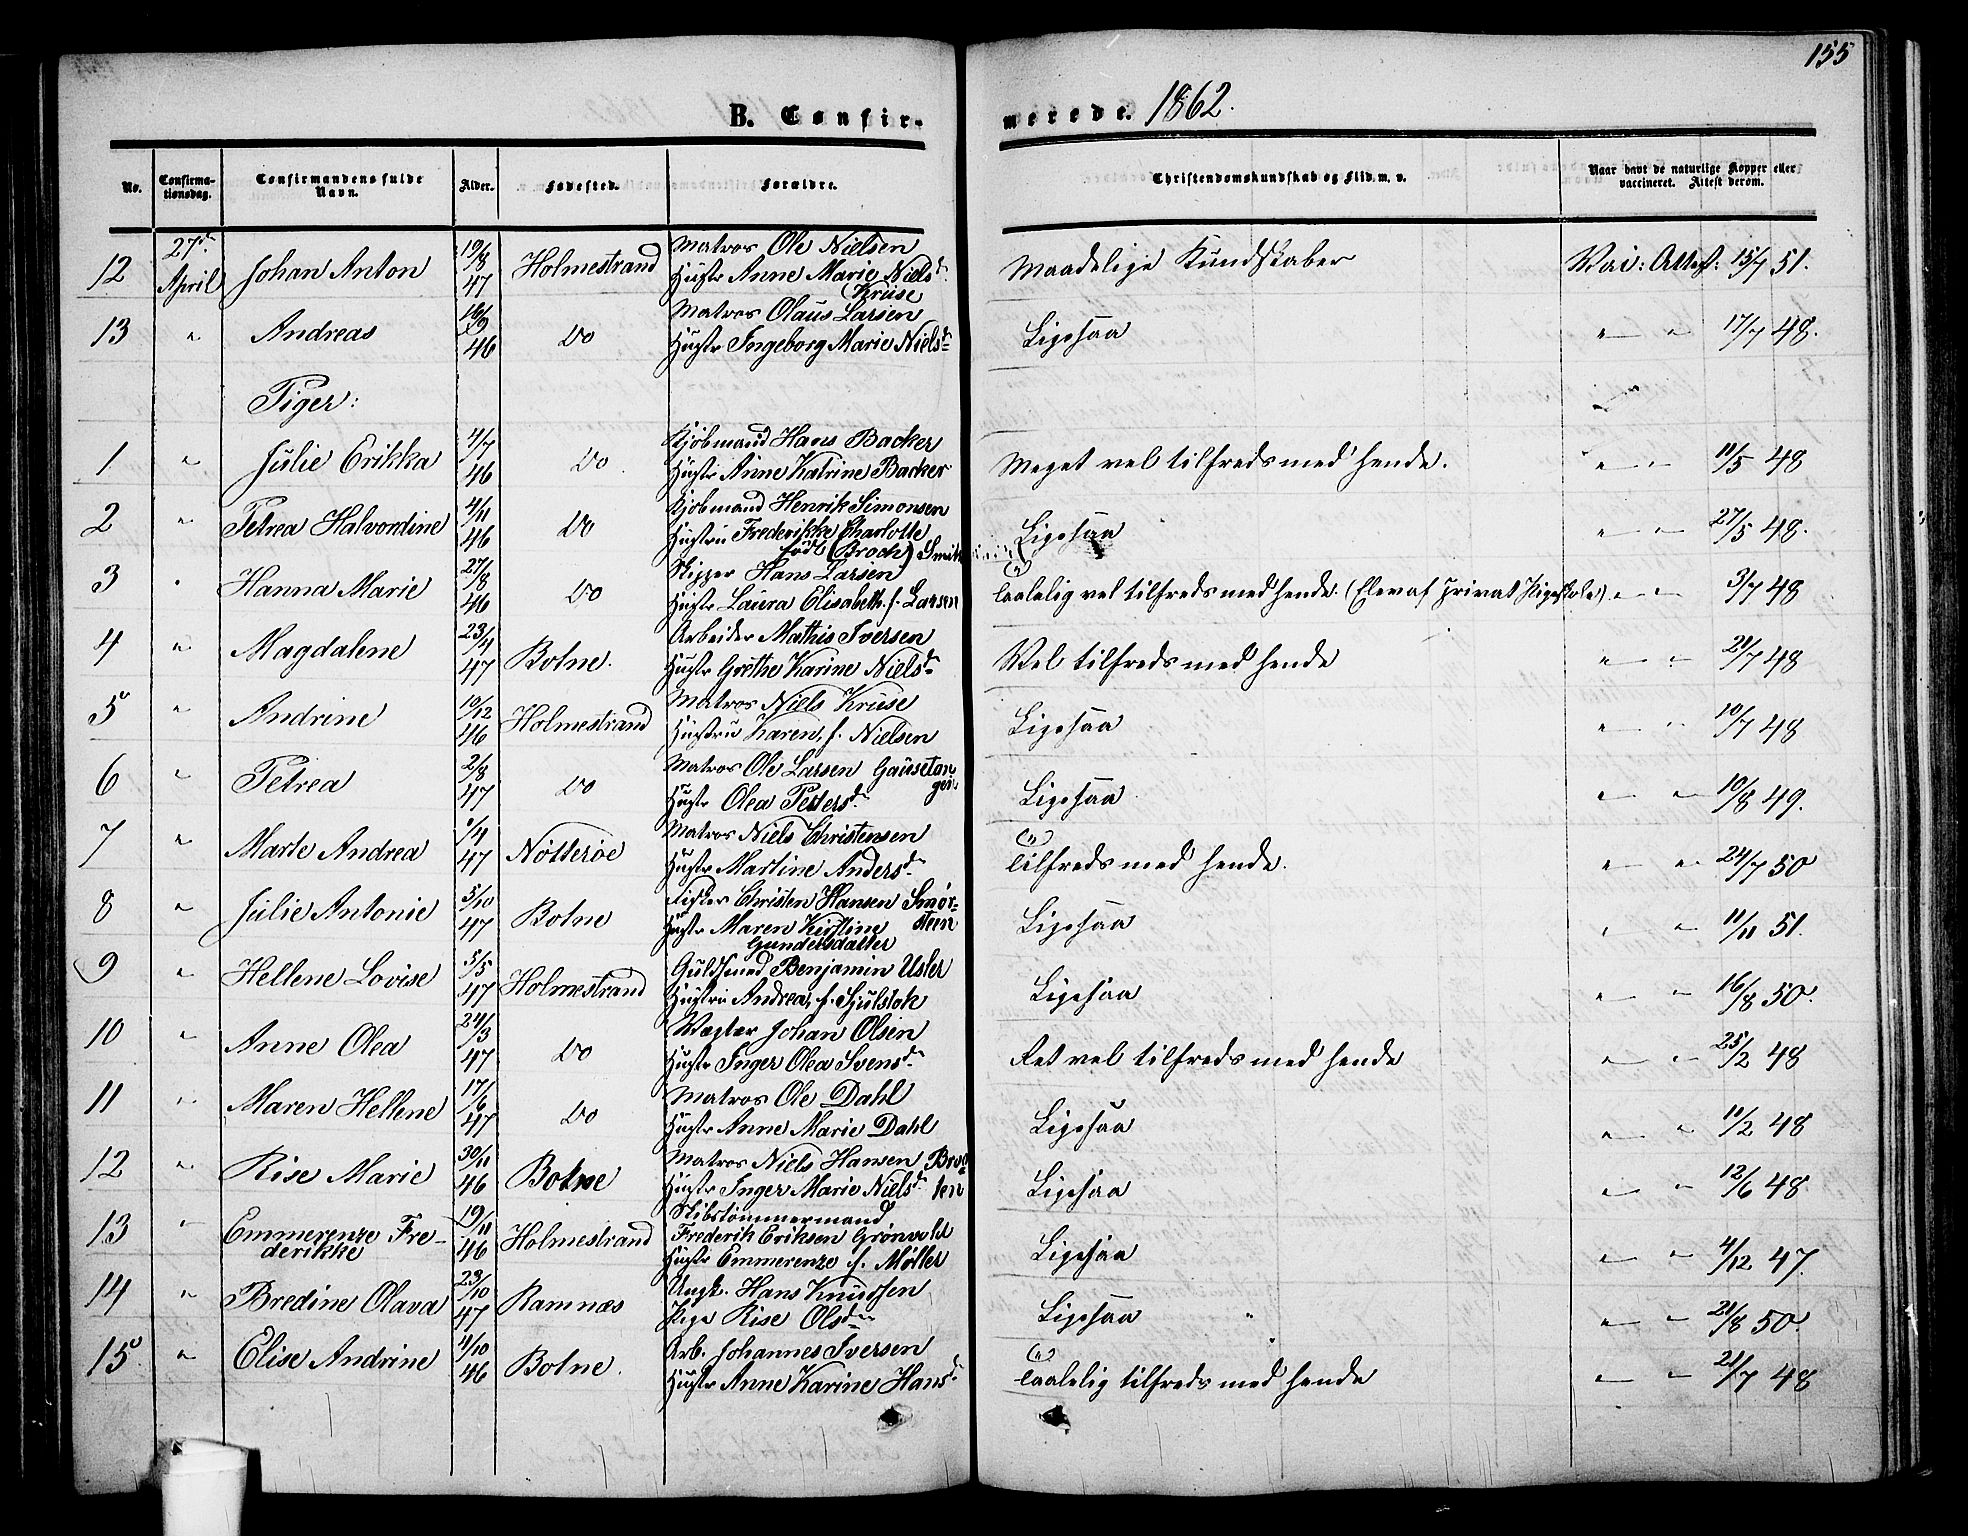 155
B. Confirmerede. 1862.
No. Confirmationsdag. Confirmandens fulde Navn. Alder. Fødested. Forældre. Christendomskundskab og Flid m. v. Naar havt de naturlige Kopper eller vaccineret. Attest derom.
12 27de April Johan Anton 19/8 47 Holmestrand Matros Ole Nielsen
Hustr Anne Marie Nielsd. Kruse Maadelige Kundskaber Vac: Attest: 15/7 51.
13 " Andreas 16/9 46 Do Matros Olaus Larsen
Hustr Ingeborg Marie Nielsd. Ligesaa " " 17/7 48.
Piger:
1 " Julie Erikka 4/7 46 Do. Kjøbmand Hans Backer
Hustr Anne Katrine Backer Meget vel tilfreds med hende. " " 11/5 48
2 " Petrea Halvordine 4/11 46 Do Kjøbmand Henrik Simonsen
Hustru Frederikke Charlotte
født (Brock) Ligesaa " " 27/5 48.
3 " Hanna Marie 27/8 46 Do Skipper Hans Larsen
Hustr Laura Elisabeth f. Larsen Taalelig vel tilfreds med hende. (Elev af privat Pigeskole) " " 3/7 48
4 " Magdalene 23/4 47 Botne. Arbeider Mathis Iversen
Hustr Grethe Karine Nielsd. Vel tilfreds med hende " " 21/7 48
5 " Andrine 10/12 46 Holmestrand Matros Niels Kruse
Hustru Karen, f. Nielsen Ligesaa " " 10/7 48
6 " Petrea 2/8 47 Do Matros Ole Larsen Gausetangen
Hustr Olea Petersd. Ligesaa " " 10/8 49.
7 " Marte Andrea 1/4 47 Nøtterøe Matros Niels Christensen
Hustr Martine Andersd. Tilfreds med hende. " " 24/7 50
8 " Julie Antonie 5/10 47 Botne Fisker Christen Hansen Smørsteen
Hustr Maren Kirstine
Gundersdatter Ligesaa " " 11/11 51.
9 " Hellene Lovise 5/5 47 Holmestrand Guldsmed Benjamin Usler
Hustru Andrea, f. Sjulstok Ligesaa " " 16/8 50.
10 " Anne Olea 24/3 47 Do Vægter Johan Olsen
Hustr Inger Olea Svensd. Ret vel tilfreds med hende " " 25/2 48
11 " Maren Hellene 17/6 47 Do Matros Ole Dahl
Hustr Anne Marie Dahl Ligesaa " " 11/2 48
12 " Rise Marie 30/11 46 Botne Matros Niels Hansen
Hustr Inger Marie Nielsd. Ligesaa " " 12/6 48.
13 " Emmerenze Frederikke 19/11 46 Holmestrand Skibstømmermand
Frederik Eriksen Grønvold
Hustr Emmerenze f. Møller Ligesaa " " 4/12 47.
14 " Bredine Olava 23/10 47 Ramnæs Ungk. Hans Knudsen
Pige Rise Olsd. Ligesaa " " 21/8 50.
15 " Elise Andrine 4/10 46 Botne. Arb. Johannes Iversen
Hustr Anne Karine Hansd. Taalelig tilfreds med hende " " 21/7 48